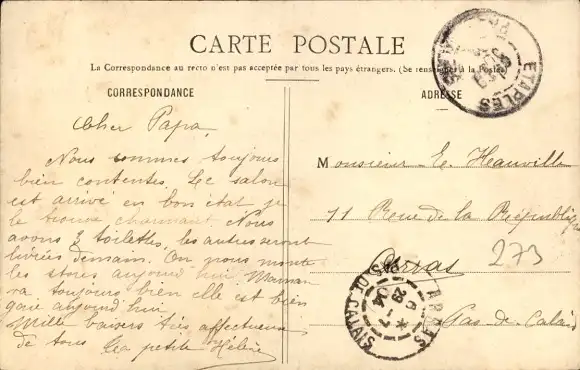 CARTE POSTALE
La Correspondance au recto n'est pas acceptée par tous les pays étrangers. (Se renseigner à la Poste)
CORRESPONDANCE
ADRESSE
Cher Papa,
Nous sommes toujours
bien contentes. Le salon
est arrivé en bon état je
le trouve charmant. Nous
avons 3 toilettes, les autres seront
livrées demain. On nous monte
les stores aujourd'hui. Maman
va toujours bien elle est bien
gaie aujourd'hui
Mille baisers très affectueux
de tous
La petite Hélène
Monsieur E. Heauville
11 Rue de la République
Arras
Pas-de-Calais
273
ETAPLES
ARRAS
PAS-DE-CALAIS
6 *
29 -7
04